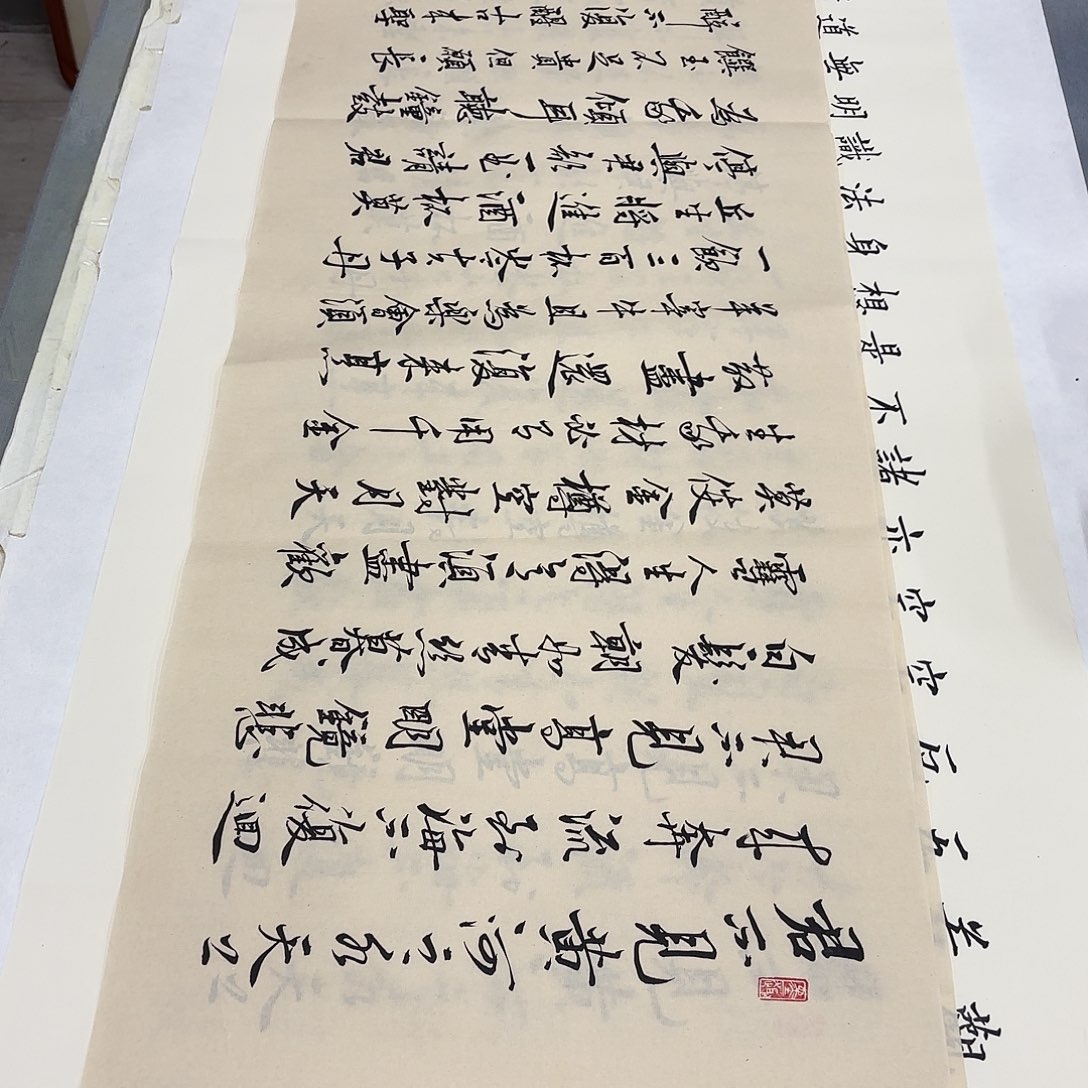 君不見黃河之水天上
來奔流到海不復迴
君不見高堂明鏡悲
白髮朝如青絲暮成
雪人生得意須盡歡
莫使金樽空對月天
生我材必有用千金
散盡還復來烹
羊宰牛且為樂會須
一飲三百杯岑夫子丹
丘生將進酒杯莫
停與君歌一曲請君
為我傾耳聽鐘鼓
饌玉不足貴但願長
醉不復醒古來聖
空
空
亦
諸
不
是
想
身
法
識
明
無
道